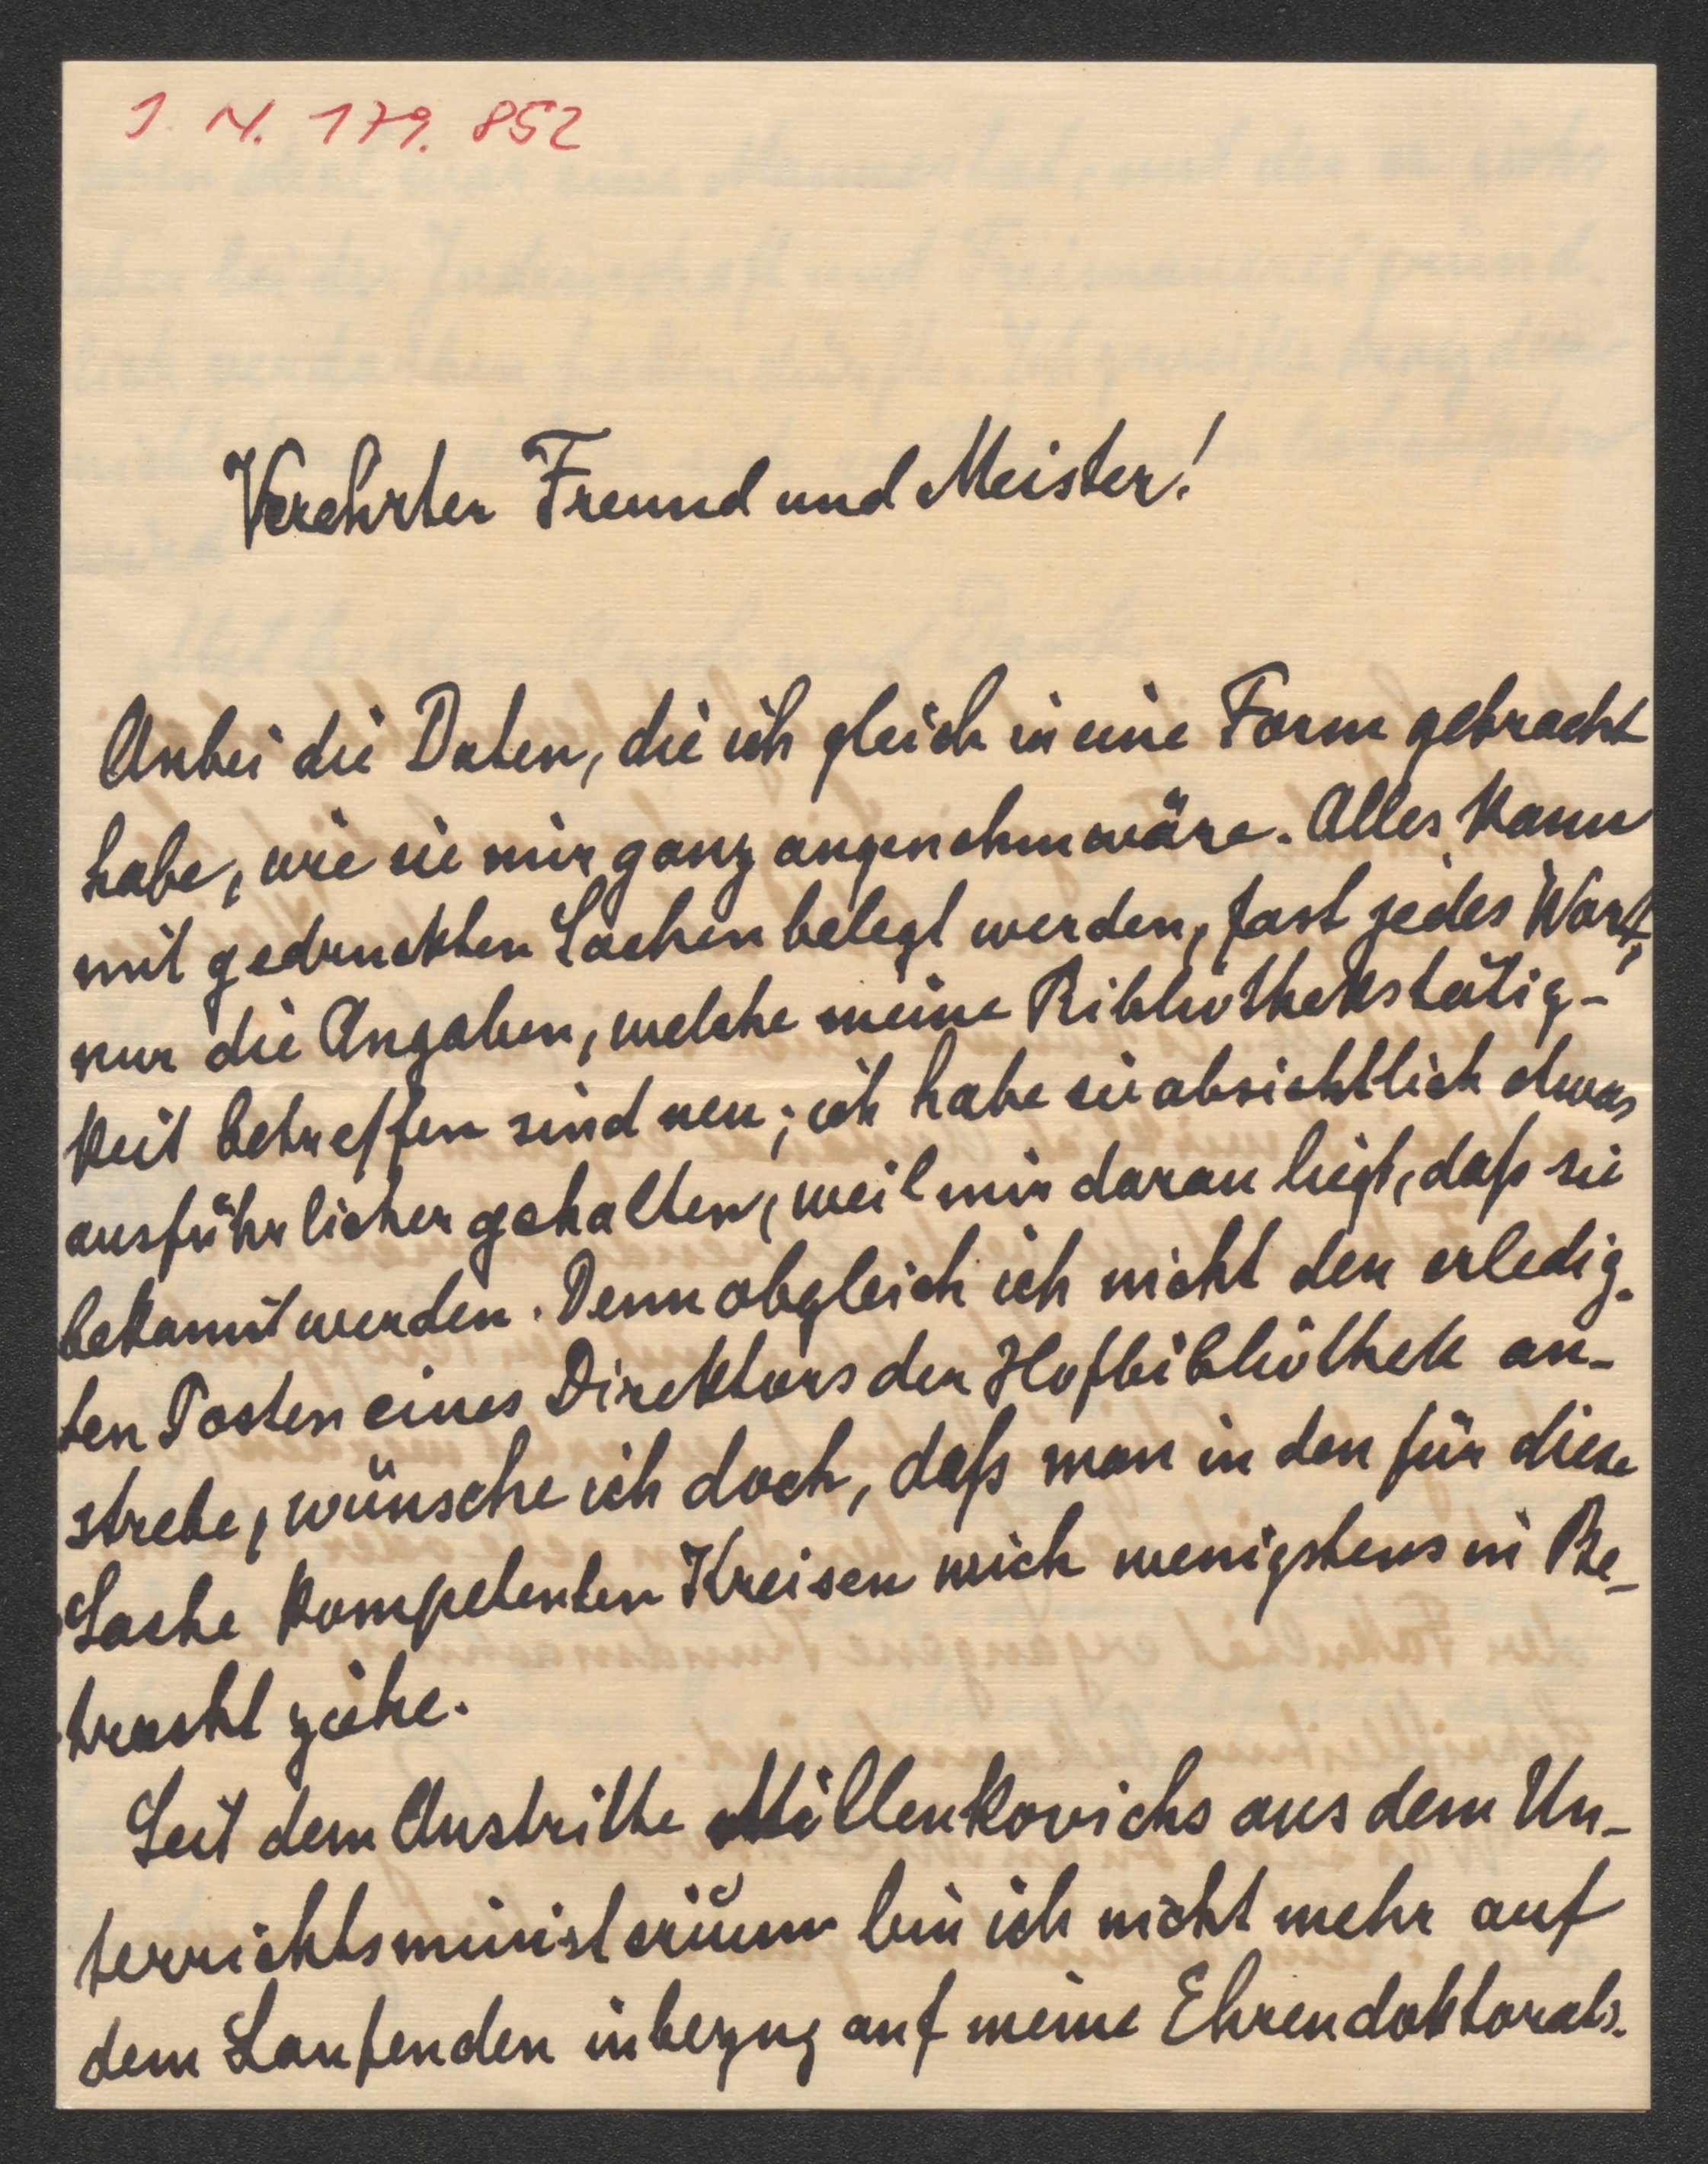 J. N. 179. 852
Verehrter Freund und Meister!
Anbei die Daten, die ich gleich in eine Form gebracht
habe, wie sie mir ganz angenehm wäre. Alles kann
mit gedruckten Sachen belegt werden, fast jedes Wort,
nur die Angaben, welche meine Bibliothekstätig-
keit betreffen sind neu; ich habe sie absichtlich etwas
ausführlicher gehalten, weil mir daran liegt, daß sie
bekannt werden. Denn obgleich ich nicht den erledig-
ten Posten eines Direktors der Hofbibliothek an-
strebe, wünsche ich doch, daß man in den für diese
Sache kompetenten Kreisen mich wenigstens in Be-
tracht ziehe.
Seit dem Austritte Millenkovichs aus dem Un-
terrichtsministerium bin ich nicht mehr auf
dem Laufenden inbezug auf meine Ehrendoktorats-